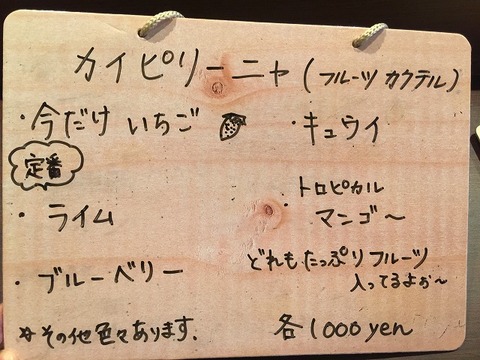 カイピリーニャ(フルーツカクテル)
・今だけ いちご
定番
・ライム
・ブルーベリー
・キュウイ
・トロピカル
マンゴ〜
どれもたっぷりフルーツ
入ってるよぉ〜
※その他色々あります.
各1000yen